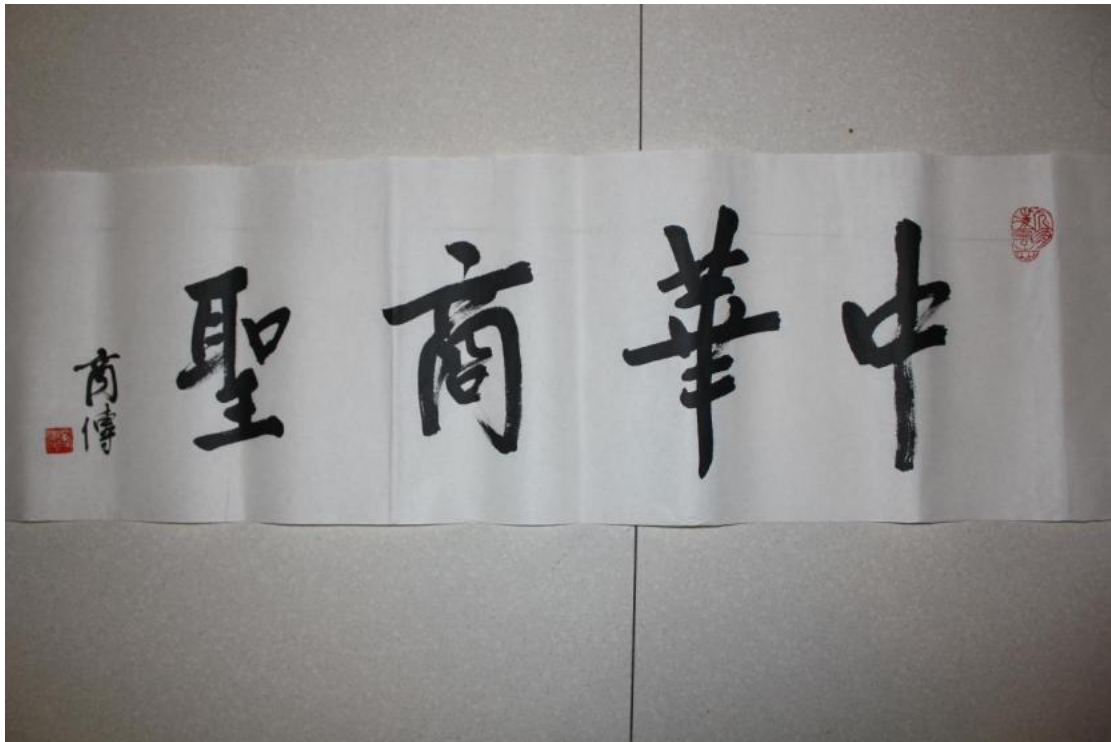 中華商聖
商傳